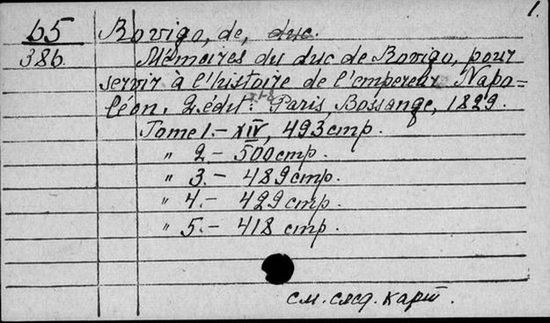 1.
65
386
Rovigo, de, duc.
Mémoires du duc de Rovigo, pour
servir à l'histoire de l'empereur Napo=
léon. 2 édit. Paris, Bossange, 1829.
Tome 1.- XIV, 493 стр.
" 2 - 500 стр.
" 3.- 489 стр.
" 4.- 429 стр.
" 5.- 418 стр.
см. след. карт.